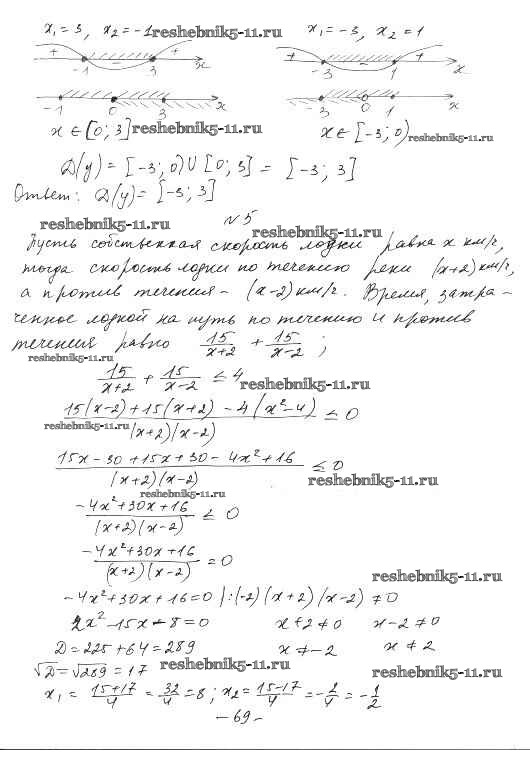 x₁=3, x₂=-1 reshebnik5-11.ru x₁=-3, x₂=1
+ - + + - +
-1 3 x -3 1 x
-1 0 3 x -3 0 1 x
x∈[0; 3] reshebnik5-11.ru x∈[-3; 0) reshebnik5-11.ru
D(y) = [-3; 0)∪[0; 3] = [-3; 3]
Ответ: D(y) = [-3; 3]
reshebnik5-11.ru №5 reshebnik5-11.ru
Пусть собственная скорость лодки равна x км/ч,
тогда скорость лодки по течению реки (x+2) км/ч,
а против течения - (x-2) км/ч. Время, затра-
ченное лодкой на путь по течению и против
течения равно 15/(x+2) + 15/(x-2) ;
reshebnik5-11.ru
15/(x+2) + 15/(x-2) ≤ 4 reshebnik5-11.ru
(15(x-2)+15(x+2)-4(x²-4))/((x+2)(x-2)) ≤ 0
reshebnik5-11.ru
(15x-30+15x+30-4x²+16)/((x+2)(x-2)) ≤ 0 reshebnik5-11.ru
reshebnik5-11.ru
(-4x²+30x+16)/((x+2)(x-2)) ≤ 0
(-4x²+30x+16)/((x+2)(x-2)) = 0
reshebnik5-11.ru
-4x²+30x+16=0 |:(-2) (x+2)(x-2)≠0
2x²-15x-8=0 x+2≠0 x-2≠0
D=225+64=289 x≠-2 x≠2
√D=√289=17 reshebnik5-11.ru reshebnik5-11.ru
x₁ = (15+17)/4 = 32/4 = 8; x₂ = (15-17)/4 = -2/4 = -1/2
-69-